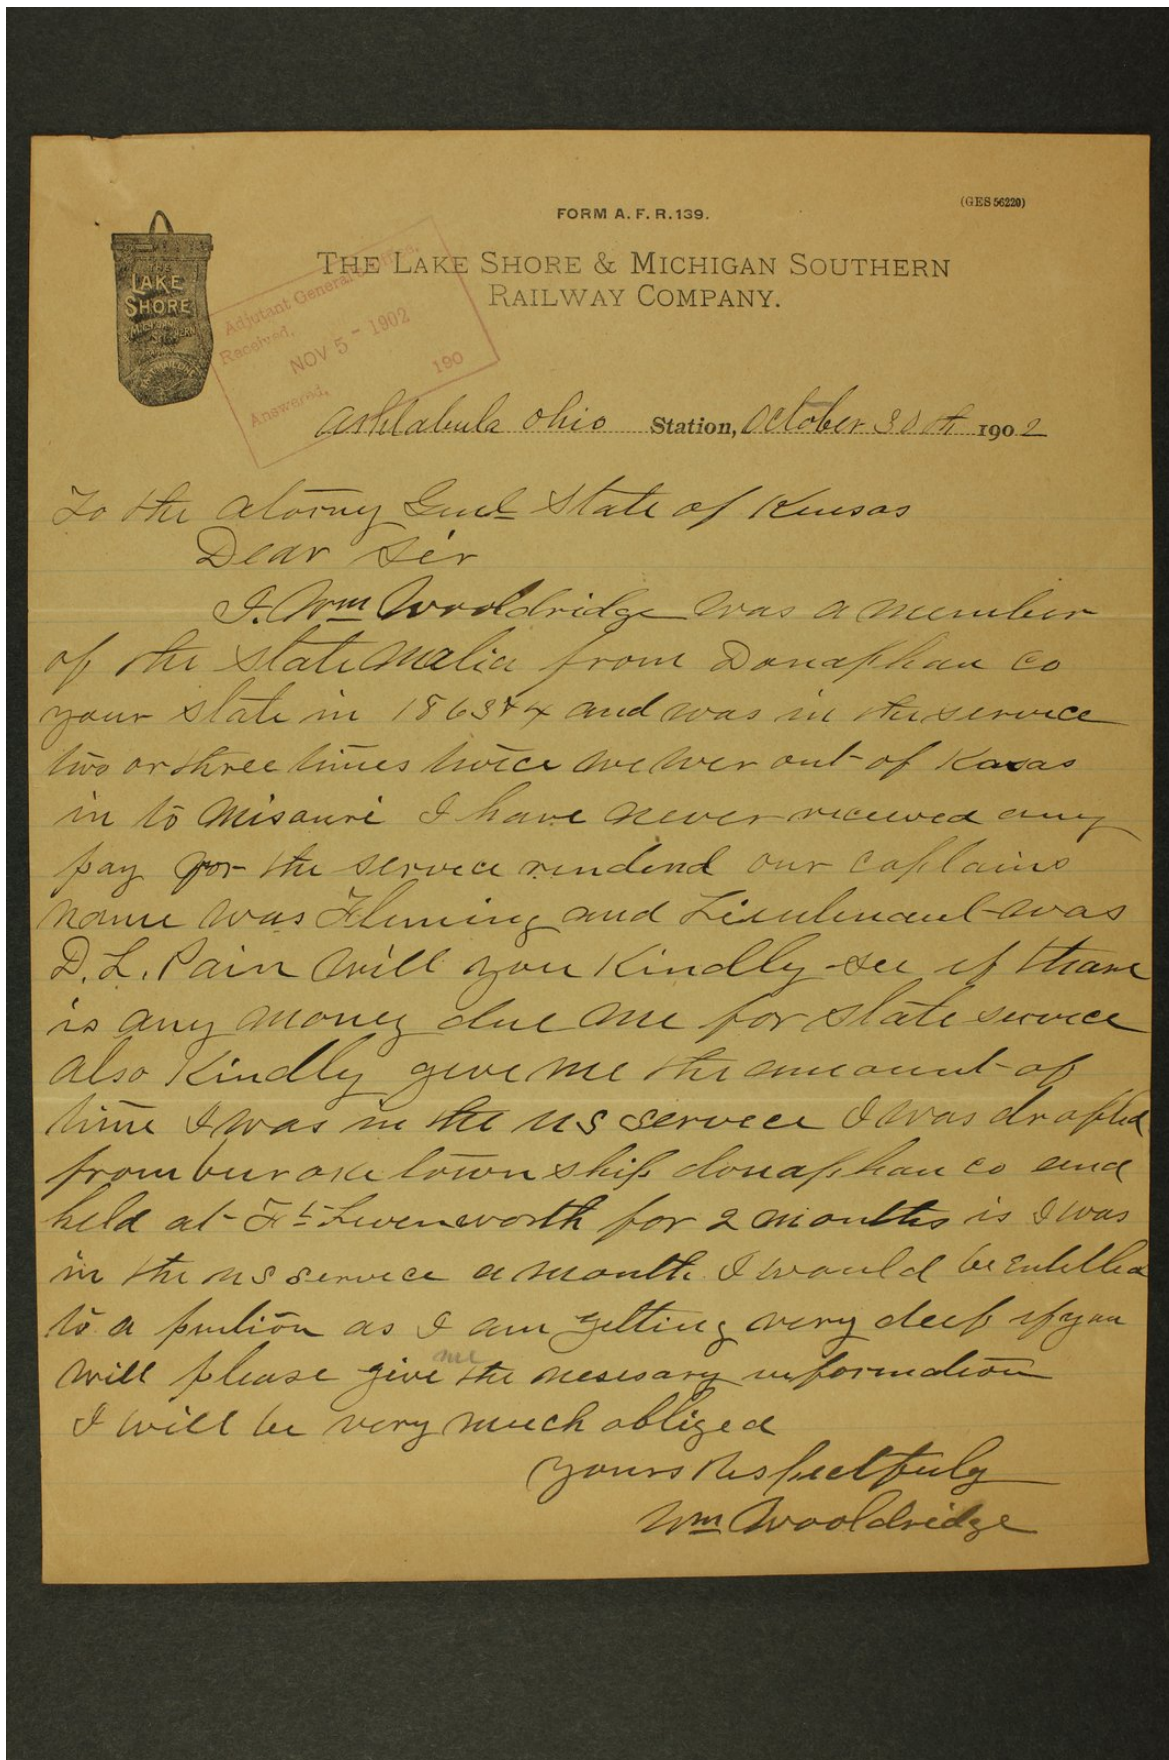 FORM A. F. R. 139.
(GES 56220)
THE LAKE SHORE & MICHIGAN SOUTHERN
RAILWAY COMPANY.
THE
LAKE
SHORE
Adjutant General's Office.
Received,
NOV 5 - 1902
Answered, 190
Ashtabula Ohio Station, October 30th 1902
To the Atorney Genl State of Kensas
Dear Sir
I. Wm Wooldridge was a member
of the State Melicia from Donaphan Co
your state in 1863 & 4 and was in the service
two or three times twice we wer out of Kasas
in to Misouri I have never received any
pay for the service rendend our captains
name was Fleming and Lieutenant was
D. L. Pain Will you Kindly see if thare
is any money due me for state service
also Kindly give me the amount of
time I was in the US service I was drafted
from burake town ship donaphan co and
held at Ft Levenworth for 2 months is I was
in the us service a month I would be entitled
to a pention as I am getting very deef if you
will please give me the nesessary information
I will be very much obliged
yours Respectfuly
Wm Wooldridge